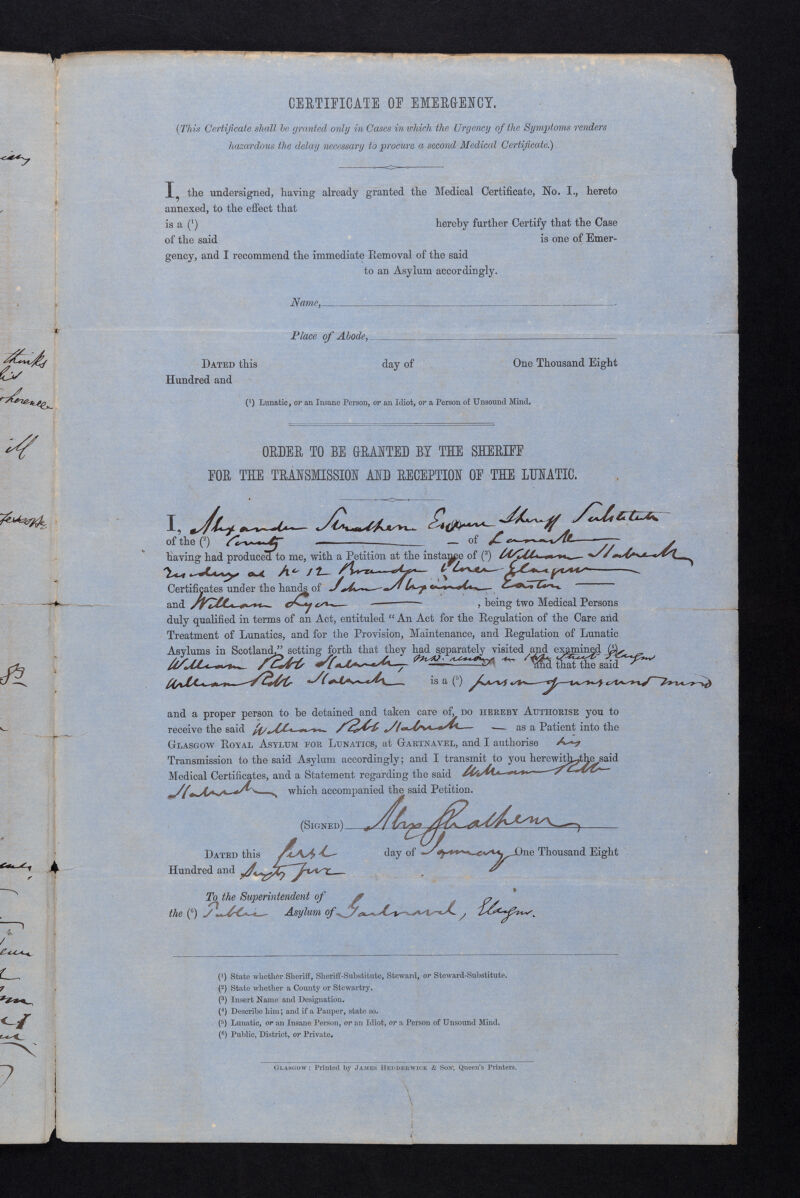 CERTIFICATE OF EMERGENCY.
(This Certificate shall be granted only in Cases in which the Urgency of the Symptoms renders
hazardous the delay necessary to procure a second Medical Certificate.)
I, the undersigned, having already granted the Medical Certificate, No. I., hereto
annexed, to the effect that
is a (¹) hereby further Certify that the Case
of the said is one of Emer-
gency, and I recommend the immediate Removal of the said
to an Asylum accordingly.
Name,
Place of Abode,
DATED this day of One Thousand Eight
Hundred and
(¹) Lunatic, or an Insane Person, or an Idiot, or a Person of Unsound Mind.
ORDER TO BE GRANTED BY THE SHERIFF
FOR THE TRANSMISSION AND RECEPTION OF THE LUNATIC.
I, Alexander Strathern Esquire Sheriff Substitute
of the (²) County of Lanark
having had produced to me, with a Petition at the instance of (³) William
residing at No 12 Place Glasgow
Certificates under the hands of John Alexander Easton
and William Lyon, being two Medical Persons
duly qualified in terms of an Act, entituled "An Act for the Regulation of the Care and
Treatment of Lunatics, and for the Provision, Maintenance, and Regulation of Lunatic
Asylums in Scotland," setting forth that they had separately visited and examined (⁴)
William Robb M.D. residing in Hope Street Glasgow
and that the said
William Robb is a (⁵) person of unsound mind
and a proper person to be detained and taken care of, DO HEREBY AUTHORISE you to
receive the said William Robb as a Patient into the
GLASGOW ROYAL ASYLUM FOR LUNATICS, at GARTNAVEL, and I authorise his
Transmission to the said Asylum accordingly; and I transmit to you herewith the said
Medical Certificates, and a Statement regarding the said William Robb
which accompanied the said Petition.
(SIGNED) Alex Strathern
DATED this first day of January One Thousand Eight
Hundred and Sixty five
To the Superintendent of
the (⁶) Public Asylum of Gartnavel, Glasgow.
(¹) State whether Sheriff, Sheriff-Substitute, Steward, or Steward-Substitute.
(²) State whether a County or Stewartry.
(³) Insert Name and Designation.
(⁴) Describe him; and if a Pauper, state so.
(⁵) Lunatic, or an Insane Person, or an Idiot, or a Person of Unsound Mind.
(⁶) Public, District, or Private.
GLASGOW: Printed by JAMES HEDDERWICK & SON, Queen's Printers.
thinks
ill